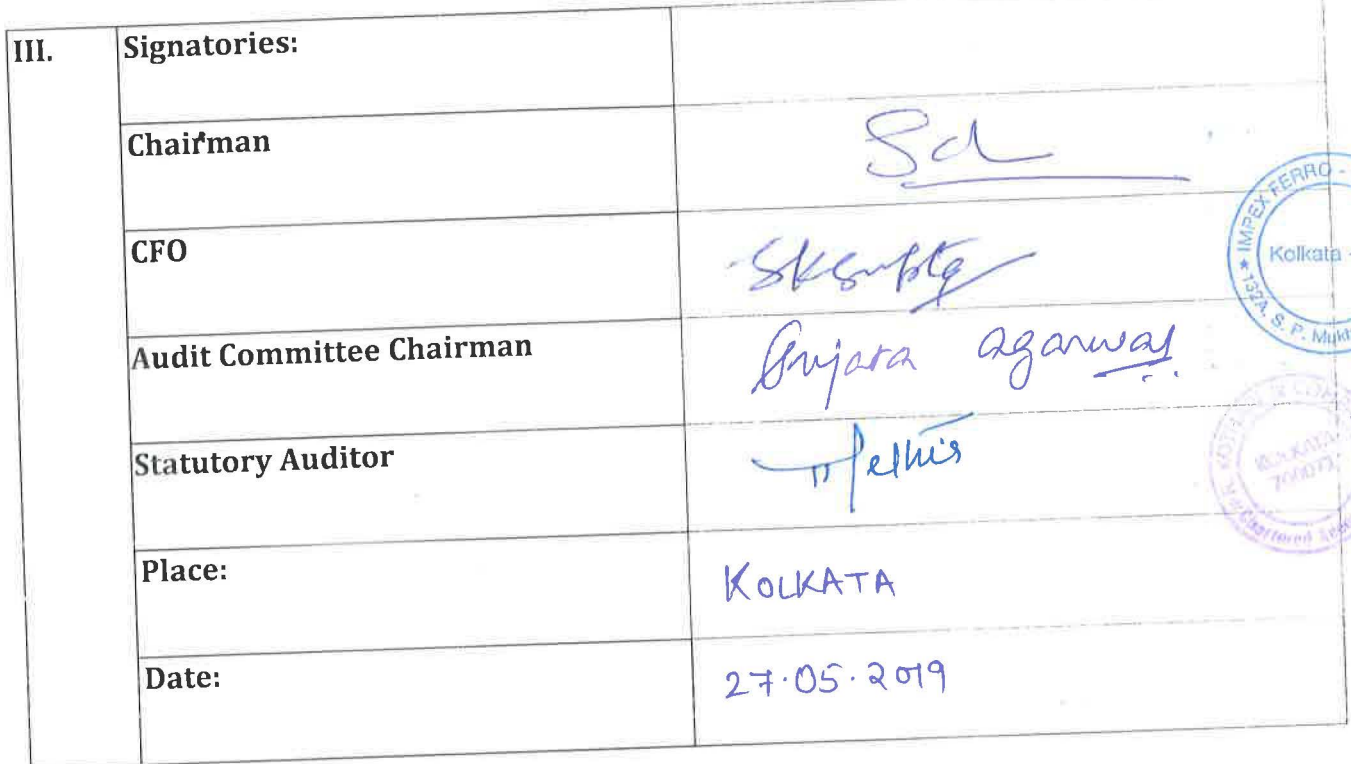 III. Signatories:
Chairman Sd
CFO SKGupta
Audit Committee Chairman Anjana agarwal
Statutory Auditor
Place: KOLKATA
Date: 27.05.2019
* IMPEX FERRO -
Kolkata -
132A, S. P. Mukh
KOLKATA
700071
Chartered